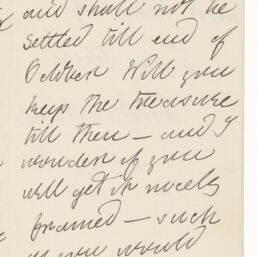 and shall not be
settled till end of
October Will you
keep the treasure
till then – and I
wonder if you
will get it nicely
framed – such
as you would